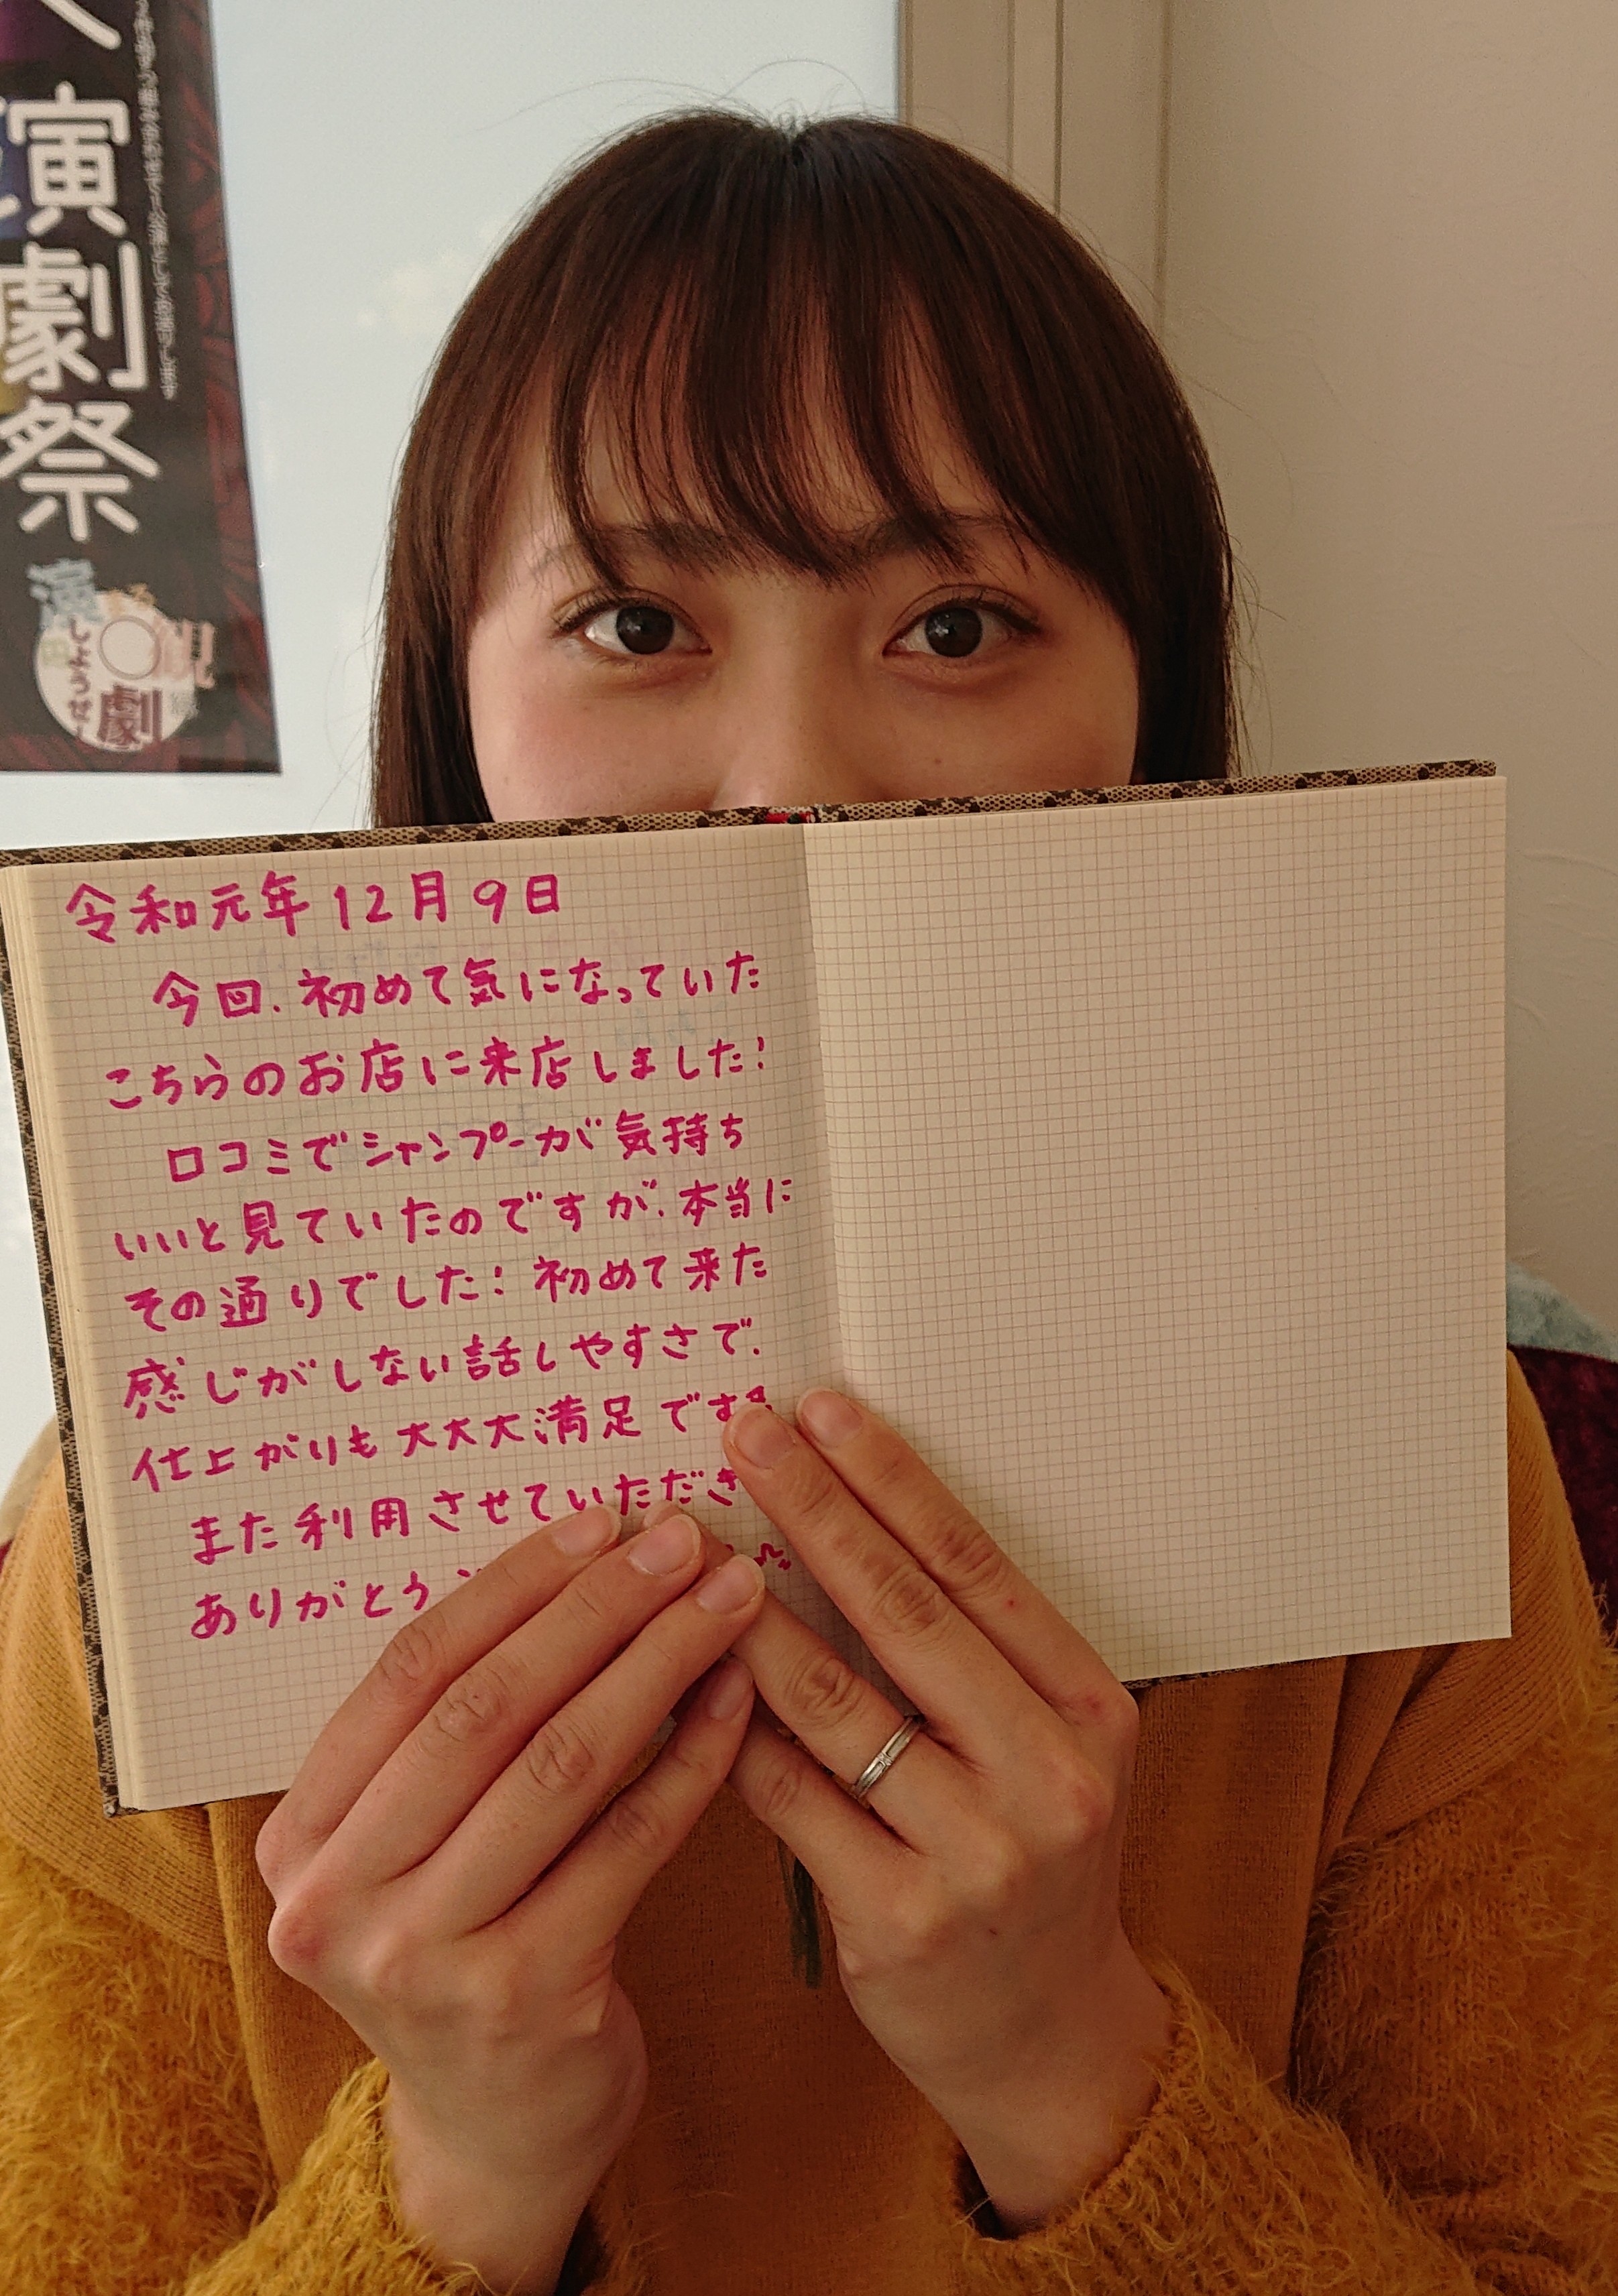 演劇祭
演
しようぜー
観
劇
令和元年12月9日
今回、初めて気になっていた
こちらのお店に来店しました!
口コミでシャンプーが気持ち
いいと見ていたのですが、本当に
その通りでした!初めて来た
感じがしない話しやすさで、
仕上がりも大大大満足です
また利用させていただき
ありがとう